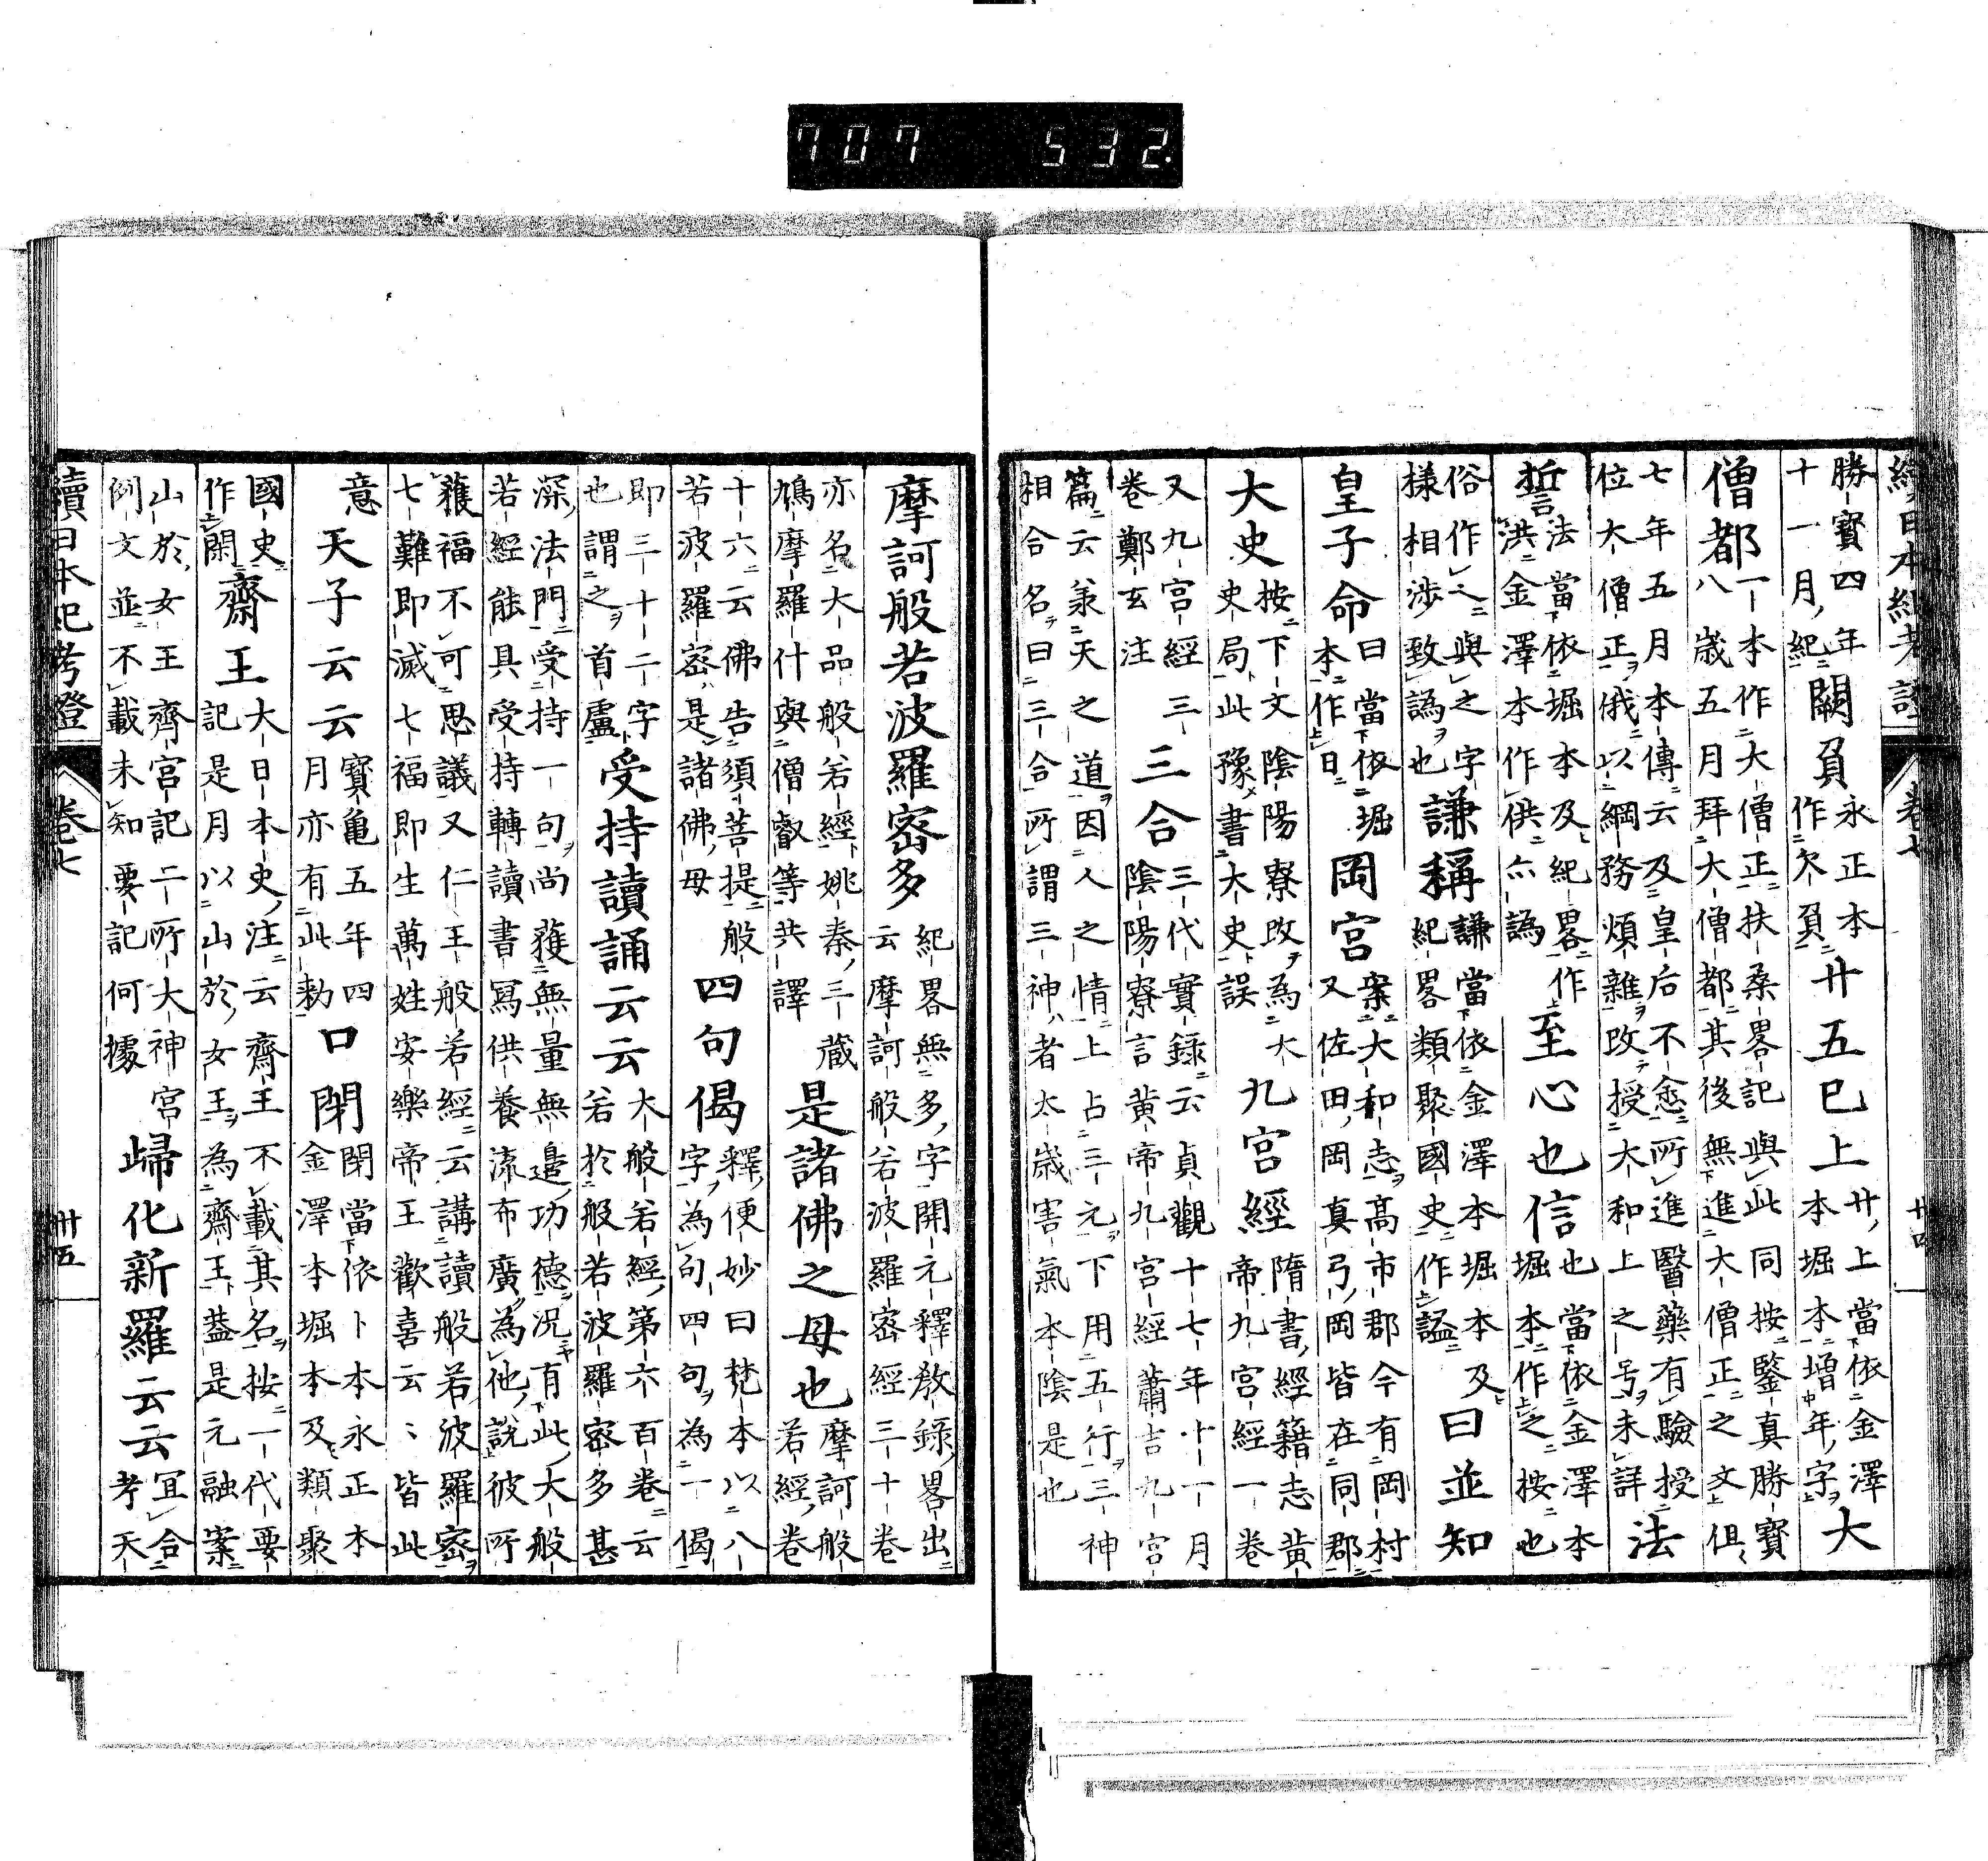 707 532.
續日本紀考證 卷七
勝寶四年
十一月紀
闕負
永正本
作欠負
廿五巳上
廿上當依金澤
本堀本增年字
大
僧都
一本作大僧正扶桑畧記與此同按鑒真勝寶
八歳五月拜大僧都其後無進大僧正之文俱
七年五月本傳云及皇后不悆所進醫藥有驗授
位大僧正俄以綱務煩雜改授大和上之号未詳
法
誓
法當依堀本及紀畧作
洪金澤本作供亦譌
至心也信
也當依金澤本
堀本作之按也
俗作㆑與之字
樣相涉致譌也
謙稱
謙當依金澤本堀本及
紀畧類聚國史作謚
曰並知
皇子命
曰當依堀
本作日
岡宮
案大和志高市郡今有岡村
又佐田岡真弓岡皆在同郡
大史
按下文陰陽寮改為大
史局此豫書大史誤
九宮經
隋書經籍志黃
帝九宮經一卷
又九宮經三
卷鄭玄注
三合
三代實錄云貞觀十七年十一月
陰陽寮言黃帝九宮經蕭吉九宮
篇云兼天之道因人之情上占三元下用五行三神
相合名曰三合所謂三神者太歳害氣本陰是也
摩訶般若波羅密多
紀畧無多字開元釋敎錄畧出
云摩訶般若波羅密經三十卷
亦名大品般若經姚秦三藏
鳩摩羅什與僧叡等共譯
是諸佛之母也
摩訶般
若經卷
十六云佛告須菩提般
若波羅密是諸佛母
四句偈
釋便妙曰梵本以八
字為句四句為一偈
即三十二字
也謂之首盧
受持讀誦云云
大般若經第六百卷云
若於般若波羅密多甚
深法門受持一句尚獲無量無邊功德况有此大般
若經能具受持轉讀書寫供養流布廣為他說彼所
獲福不可思議又仁王般若經云講讀般若波羅密
七難即滅七福即生萬姓安樂帝王歡喜云〻皆此
意
天子云云
寶龜五年四
月亦有此勅
口閉
閉當依卜本永正本
金澤本堀本及類聚
國史
作閑
齋王
大日本史注云齋王不載其名按一代要
記是月以山於女王為齋王葢是元融案
山於女王齊宮記二所大神宮
例文並不載未知要記何據
歸化新羅云云
冝合
考天
續日本紀考證 卷七 卅五